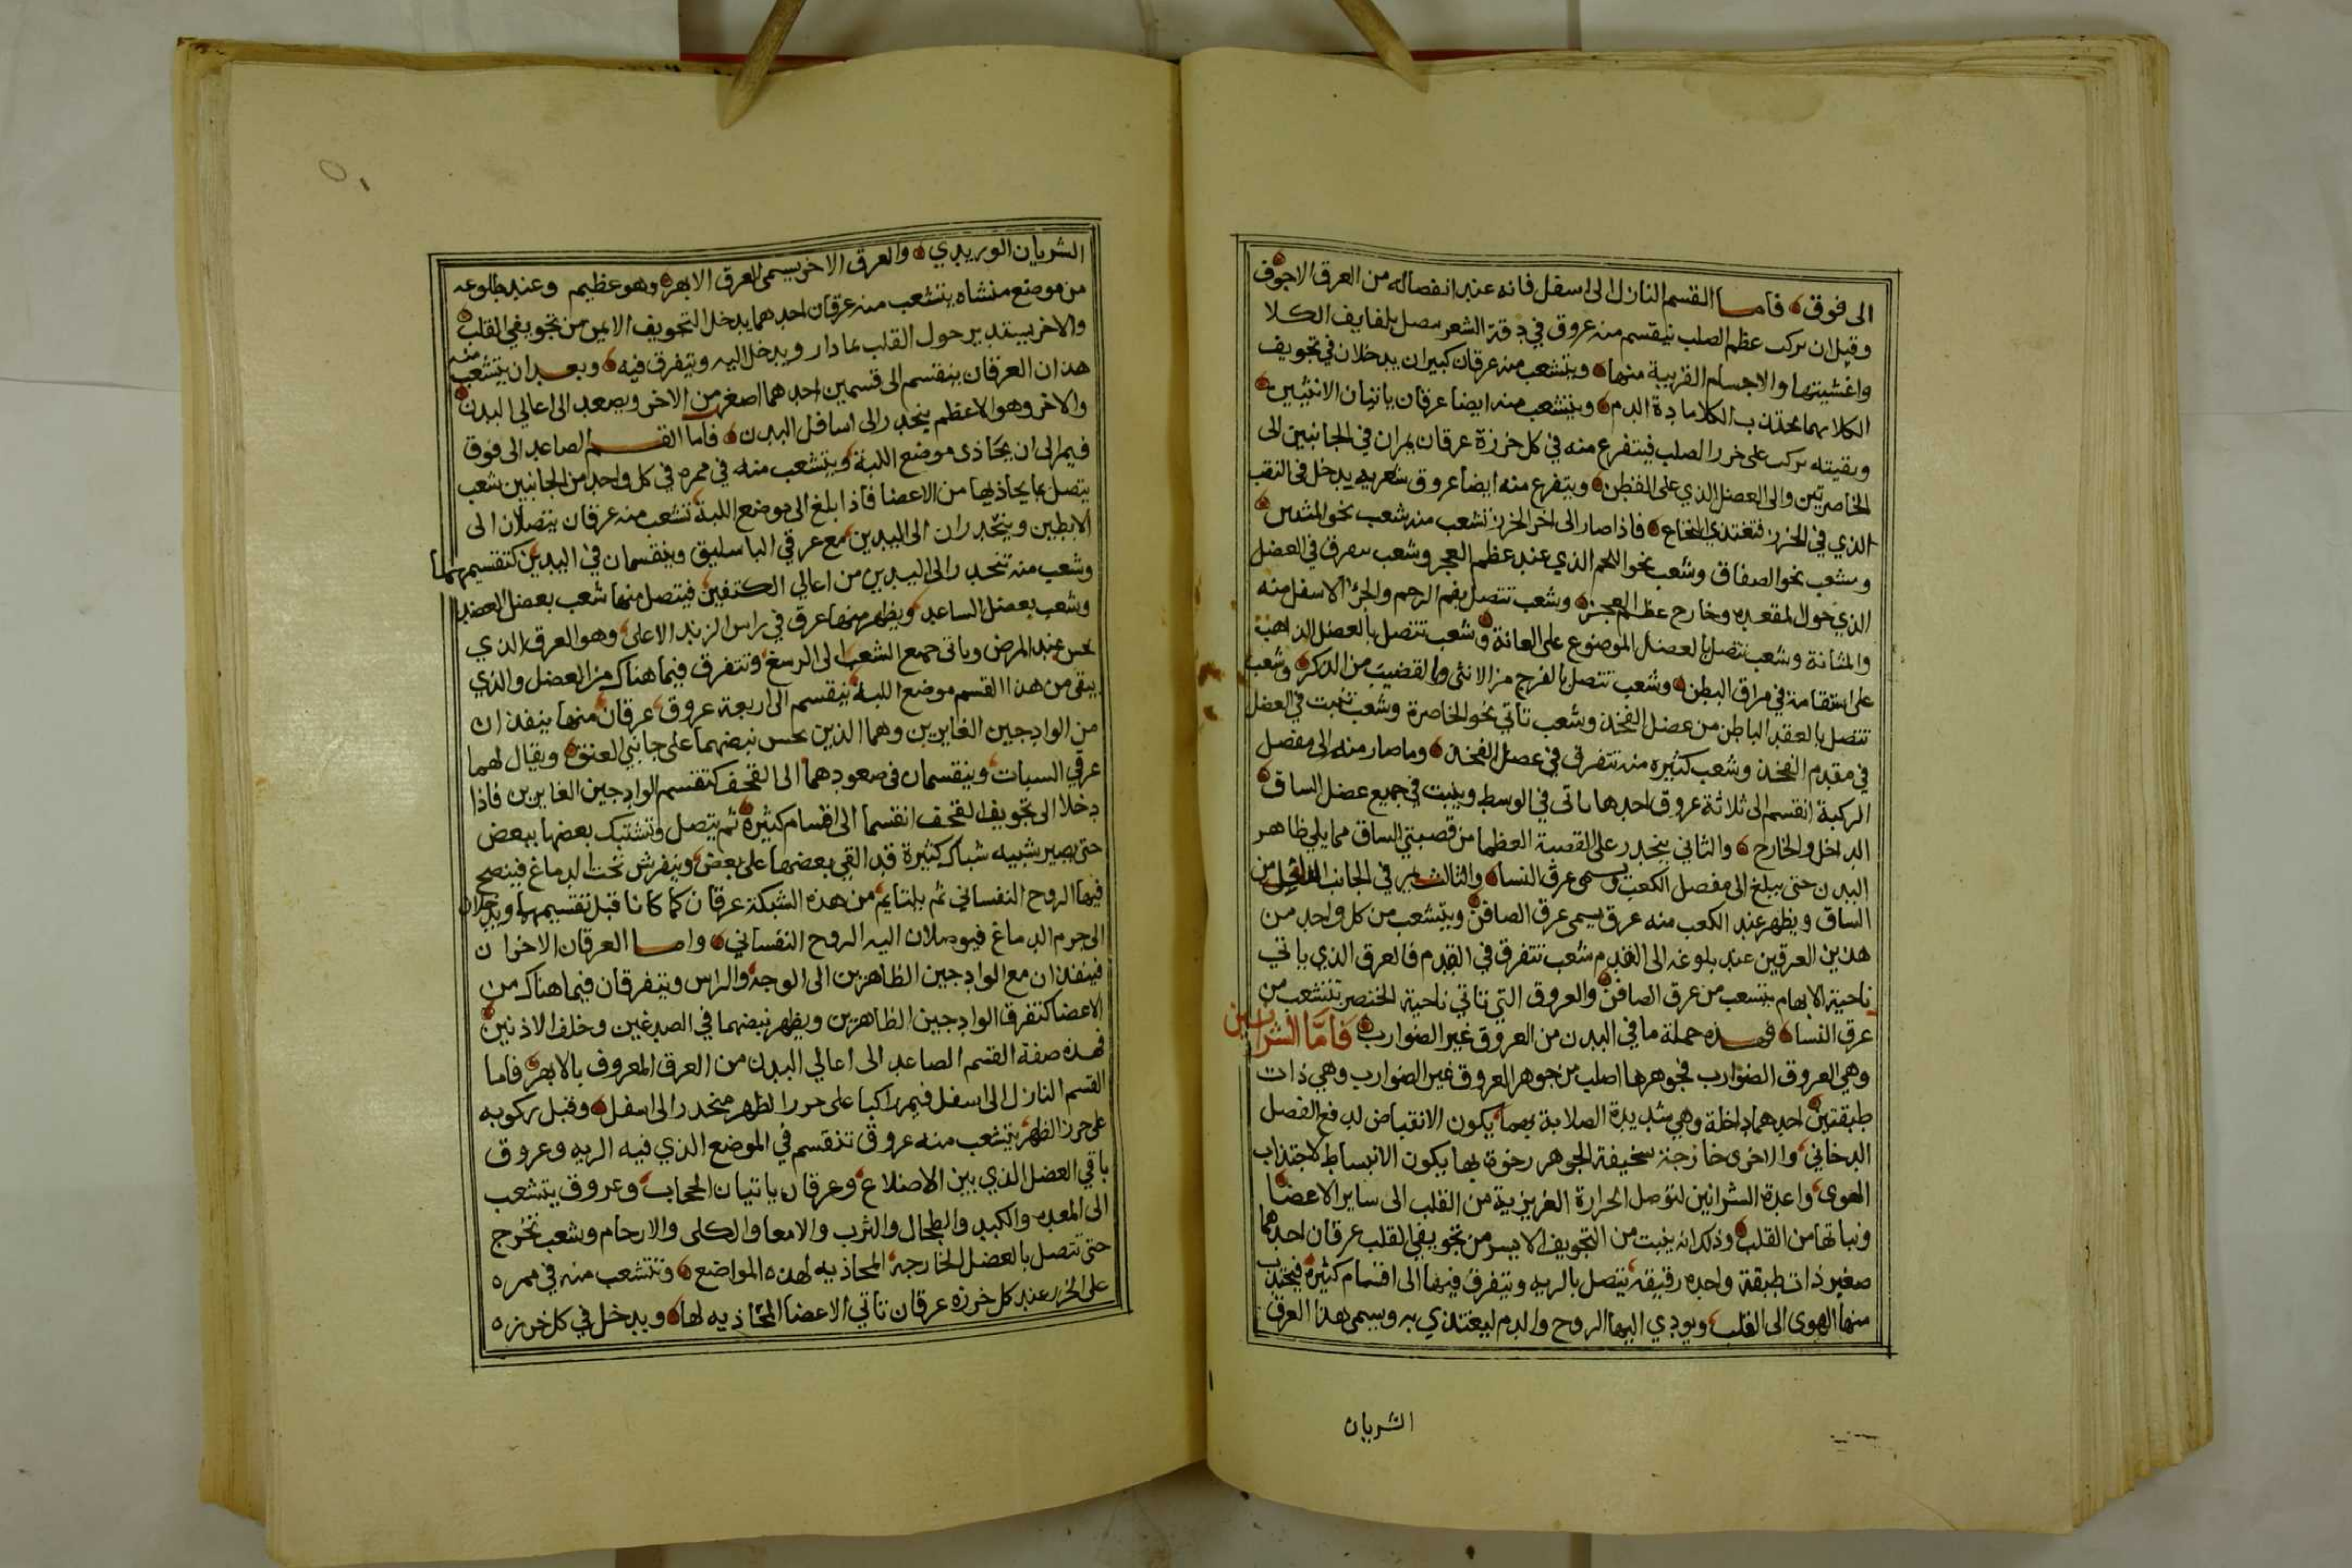 الى فوق فاما القسم النازل الى اسفل فانه عند انفصاله من العرق الاجوف
وقبل ان يركب عظم الصلب ينقسم منه عروق في دقة الشعر يتصل بلفايف الكلا
واغشيتها والاجسام القريبة منها ويتشعب منه عرقان كبيران يدخلان في تجويف
الكلا بهما يجتذب الكلا مادة الدم ويتشعب منه ايضا عرقان ياتيان الانثيين
وبقيته يركب على خرز الصلب فيتفرع منه في كل خرزة عرقان يمران في الجانبين الى
الخاصرتين والى العضل الذي على القطن ويتفرع منه ايضا عروق شعريه يدخل في الثقب
الذي في الخرز فتغتذي النخاع فاذا صار الى اخر الخرز تشعب منه شعب نحو
وشعب نحو الصفاق وشعب نحو اللحم الذي عند عظم العجز وشعب تتفرق في العضل
الذي حول المقعده وخارج عظم العجز وشعب تتصل بفم الرحم والجزء الاسفل منه
والمثانة وشعب تتصل بالعضل الموضوع على العانة وشعب تتصل بالعضل الذاهب
على استقامة في مراق البطن وشعب تتصل بالفرج من الانثى والقضيب من الذكر وشعب
تتصل بالعقد الباطن من عضل الفخذ وشعب تاتي نحو الخاصرة وشعب تنبت في العضل
في مقدم الفخذ وشعب كثيره منه تتفرق في عضل الفخذ وما صار منه الى مفصل
الركبة انقسم الى ثلاثة عروق احدها ياتي في الوسط وينبت في جميع عضل الساق
الداخل والخارج والثاني ينحدر على القصبة العظما من قصبتي الساق مما يلي ظاهر
البدن حتى يبلغ الى مفصل الكعب ويسمى عرق النسا والثالث يمر في الجانب الداخل من
الساق ويظهر عند الكعب منه عرق يسمى عرق الصافن ويتشعب من كل واحد من
هذين العرقين عند بلوغه الى القدم شعب تتفرق في القدم فالعرق الذي ياتي
ناحية الابهام يتشعب من عرق الصافن والعروق التي تاتي ناحية الخنصر تتشعب من
عرق النسا فهذه جملة ما في البدن من العروق غير الضوارب فاما الشرايين
وهي العروق الضوارب فجوهرها اصلب من جوهر العروق غير الضوارب وهي ذات
طبقتين احدهما داخلة وهي شديدة الصلابة بهما يكون الانقباض لدفع الفضل
الدخاني والاخرى خارجة سخيفة الجوهر رخوة بها يكون الانبساط لاجتذاب
الهوى واعدة الشرايين لتوصل الحرارة الغريزية من القلب الى ساير الاعضا
ونباتها من القلب وذلك انه ينبت من التجويف الايسر من تجويفي القلب عرقان احدهما
صغير ذات طبقة واحده رقيقة يتصل بالريه ويتفرق فيها الى اقسام كثيرة فيجتذب
منها الهوى الى القلب ويودي اليها الروح والدم ليغتذي به ويسمى هذا العرق
الشريان
الشريان الوريدي والعرق الاخر يسمى العرق الابهر وهو عظيم وعند طلوعه
من موضع منشاه يتشعب منه عرقان احدهما يدخل التجويف الايمن من تجويفي القلب
والاخر يستدير حول القلب بما دار ويدخل اليه ويتفرق فيه وبعد ان يتشعب منه
هذان العرقان ينقسم الى قسمين احدهما اصغر من الاخر ويصعد الى اعالي البدن
والاخر وهو الاعظم ينحدر الى اسافل البدن فاما القسم الصاعد الى فوق
فيمر الى ان يحاذى موضع اللبة ويتشعب منه في ممره في كل واحد من الجانبين شعب
يتصل بما يحاذيها من الاعضا فاذا بلغ الى موضع اللبة تشعب منه عرقان يتصلان الى
الابطين وينحدران الى اليدين مع عرقي الباسليق وينقسمان في اليدين كتقسيمهما
وشعب منه تنحدر الى اليدين من اعالي الكتفين فيتصل منها شعب بعضل العضد
وشعب بعضل الساعد ويظهر منها عرق في راس الزند الاعلى وهو العرق الذي
يحس عند المرض وياتي جميع الشعب الى الرسغ وتتفرق فيما هناك من العضل والذي
يبقى من هذا القسم موضع اللبة ينقسم الى اربعة عروق عرقان منها ينفذان
من الوادجين الغايرين وهما الذين يحس نبضهما على جانبي العنق ويقال لهما
عرقي السبات وينقسمان في صعودهما الى القحف كتقسم الوادجين الغايرين فاذا
دخلا الى تجويف القحف انقسما الى اقسام كثيرة ثم يتصل وتشتبك بعضها ببعض
حتى يصير شبيه شباك كثيرة قد القي بعضها على بعض وينفرش تحت الدماغ فينضج
فيها الروح النفساني ثم يلتايم من هذه الشبكة عرقان كما كانا قبل تقسيمهما ويدخلان
الى جرم الدماغ فيوصلان اليه الروح النفساني واما العرقان الاخران
فينفذان مع الوادجين الظاهرين الى الوجه والراس ويتفرقان فيما هناك من
الاعضا كتفرق الوادجين الظاهرين ويظهر نبضهما في الصدغين وخلف الاذنين
فهذه صفة القسم الصاعد الى اعالي البدن من العرق المعروف بالابهر فاما
القسم النازل الى اسفل فيمر راكبا على خرز الظهر منحدر الى اسفل وقبل ركوبه
على خرز الظهر يتشعب منه عروق تنقسم في الموضع الذي فيه الريه وعروق
باقي العضل الذي بين الاضلاع وعرقان ياتيان الحجاب وعروق يتشعب
الى المعده والكبد والطحال والثرب والامعا والكلى والارحام وشعب تخرج
حتى تتصل بالعضل الخارجة المحاذيه لهذه المواضع وتتشعب منه في ممره
على الخرز عند كل خرزه عرقان تاتي الاعضا المحاذيه لها ويدخل في كل خرزه